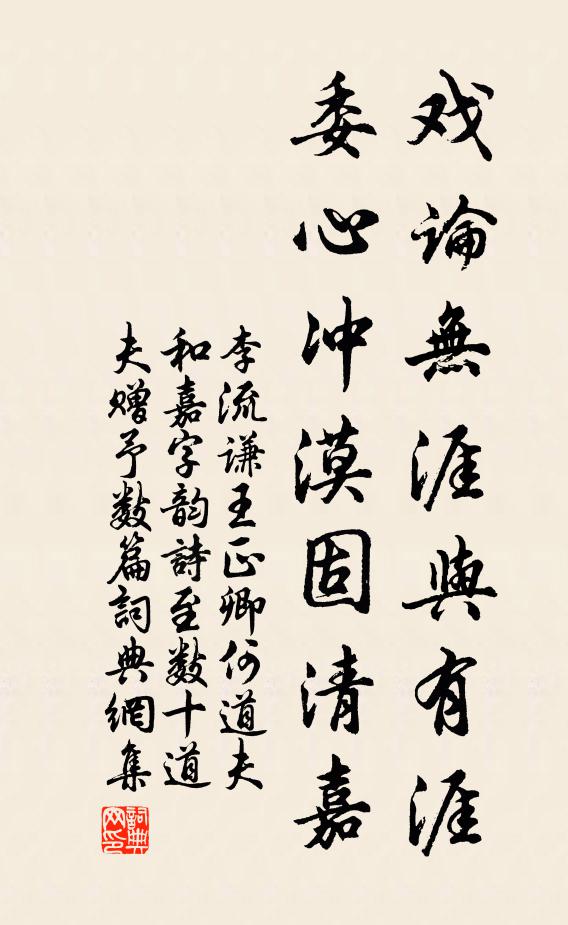 戏論無涯與有涯
委心冲漠固清嘉
李流谦王正卿何道夫
和嘉字韵詩至数十道
夫赠予数篇詞典網集
詞典网印